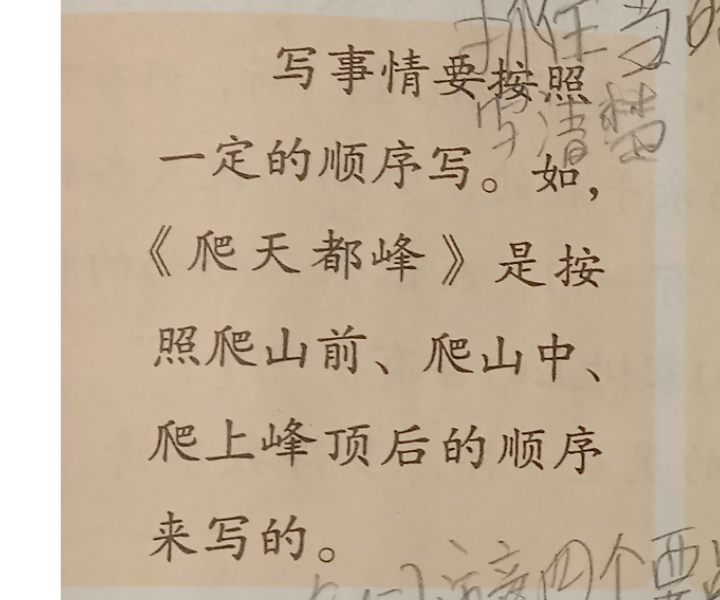 抓住当
写事情要按照
写清楚
一定的顺序写。如，
《爬天都峰》是按
照爬山前、爬山中、
爬上峰顶后的顺序
来写的。
四个要